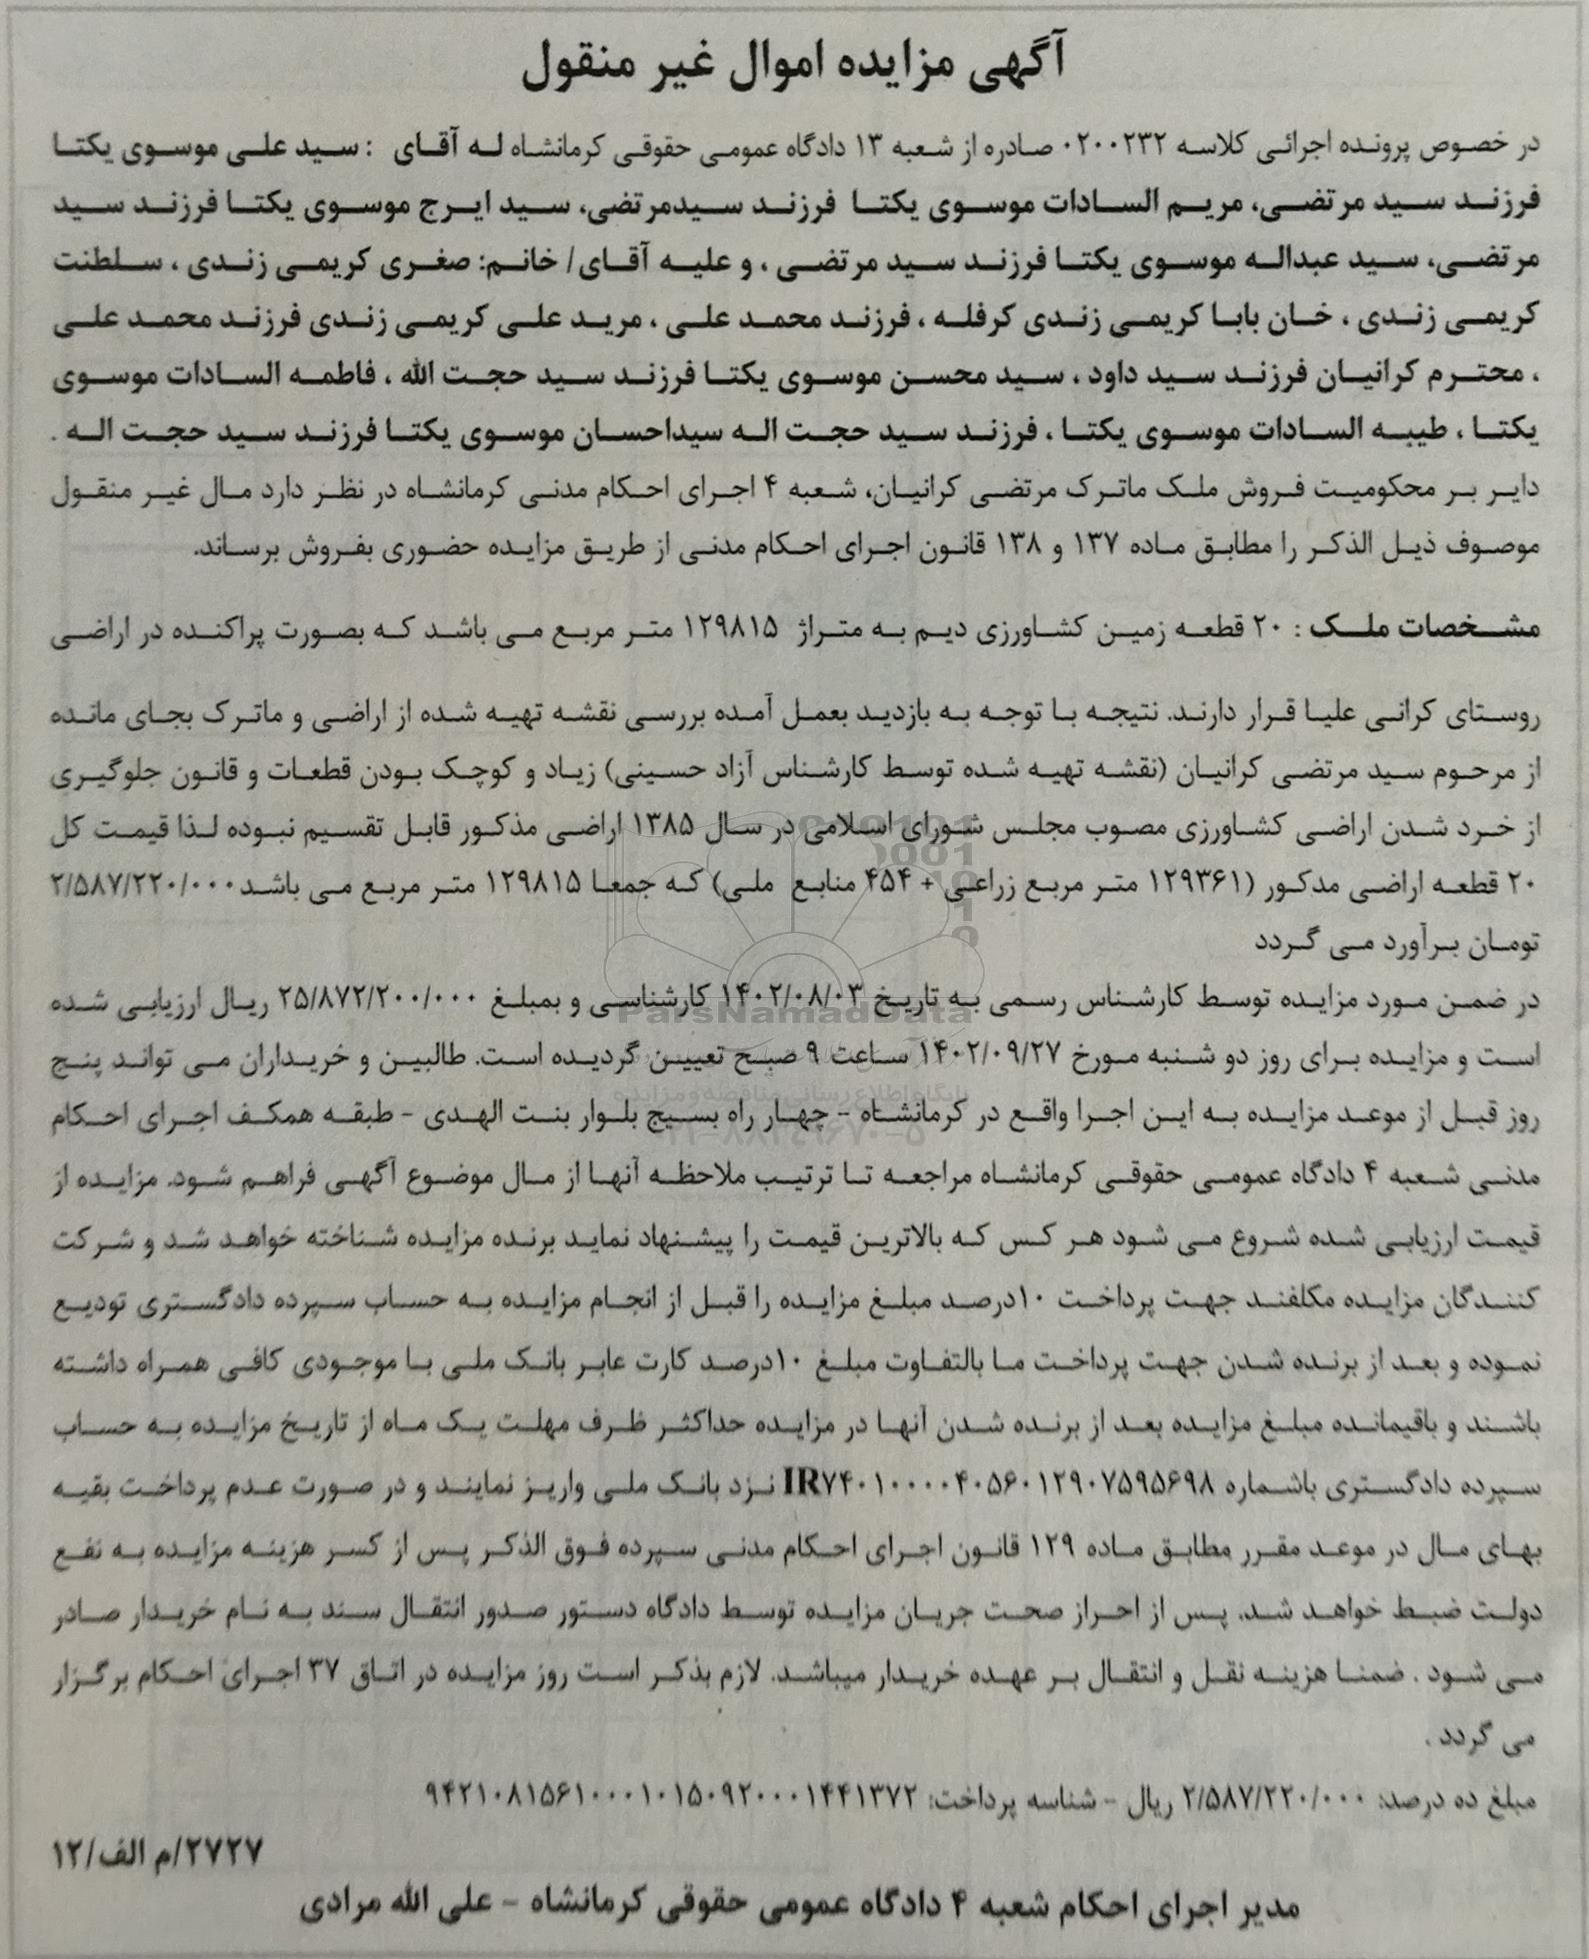 آگهی مزایده اموال غیر منقول
در خصوص پرونده اجرائی کلاسه ۰۲۰۰۲۳۲ صادره از شعبه ۱۳ دادگاه عمومی حقوقی کرمانشاه له آقای : سید علی موسوی یکتا
فرزند سید مرتضی، مریم السادات موسوی یکتا فرزند سیدمرتضی، سید ایرج موسوی یکتا فرزند سید
مرتضی، سید عبداله موسوی یکتا فرزند سید مرتضی ، و علیه آقای/ خانم: صغری کریمی زندی ، سلطنت
کریمی زندی ، خان بابا کریمی زندی کرفله ، فرزند محمد علی ، مرید علی کریمی زندی فرزند محمد علی
، محترم کرانیان فرزند سید داود ، سید محسن موسوی یکتا فرزند سید حجت الله ، فاطمه السادات موسوی
یکتا ، طیبه السادات موسوی یکتا ، فرزند سید حجت اله سیداحسان موسوی یکتا فرزند سید حجت اله .
دایر بر محکومیت فروش ملک ماترک مرتضی کرانیان، شعبه ۴ اجرای احکام مدنی کرمانشاه در نظر دارد مال غیر منقول
موصوف ذیل الذکر را مطابق ماده ۱۳۷ و ۱۳۸ قانون اجرای احکام مدنی از طریق مزایده حضوری بفروش برساند.
مشخصات ملک : ۲۰ قطعه زمین کشاورزی دیم به متراژ ۱۲۹۸۱۵ متر مربع می باشد که بصورت پراکنده در اراضی
روستای کرانی علیا قرار دارند. نتیجه با توجه به بازدید بعمل آمده بررسی نقشه تهیه شده از اراضی و ماترک بجای مانده
از مرحوم سید مرتضی کرانیان (نقشه تهیه شده توسط کارشناس آزاد حسینی) زیاد و کوچک بودن قطعات و قانون جلوگیری
از خرد شدن اراضی کشاورزی مصوب مجلس شورای اسلامی در سال ۱۳۸۵ اراضی مذکور قابل تقسیم نبوده لذا قیمت کل
۲۰ قطعه اراضی مدکور (۱۲۹۳۶۱ متر مربع زراعی + ۴۵۴ منابع ملی) که جمعا ۱۲۹۸۱۵ متر مربع می باشد ۲/۵۸۷/۲۲۰/۰۰۰
تومان برآورد می گردد
در ضمن مورد مزایده توسط کارشناس رسمی به تاریخ ۱۴۰۲/۰۸/۰۳ کارشناسی و بمبلغ ۲۵/۸۷۲/۲۰۰/۰۰۰ ریال ارزیابی شده
است و مزایده برای روز دو شنبه مورخ ۱۴۰۲/۰۹/۲۷ ساعت ۹ صبح تعیین گردیده است. طالبین و خریداران می تواند پنج
روز قبل از موعد مزایده به این اجرا واقع در کرمانشاه - چهار راه بسیج بلوار بنت الهدی - طبقه همکف اجرای احکام
مدنی شعبه ۴ دادگاه عمومی حقوقی کرمانشاه مراجعه تا ترتیب ملاحظه آنها از مال موضوع آگهی فراهم شود. مزایده از
قیمت ارزیابی شده شروع می شود هر کس که بالاترین قیمت را پیشنهاد نماید برنده مزایده شناخته خواهد شد و شرکت
کنندگان مزایده مکلفند جهت پرداخت ۱۰درصد مبلغ مزایده را قبل از انجام مزایده به حساب سپرده دادگستری تودیع
نموده و بعد از برنده شدن جهت پرداخت ما بالتفاوت مبلغ ۱۰درصد کارت عابر بانک ملی با موجودی کافی همراه داشته
باشند و باقیمانده مبلغ مزایده بعد از برنده شدن آنها در مزایده حداکثر ظرف مهلت یک ماه از تاریخ مزایده به حساب
سپرده دادگستری باشماره IR۷۴۰۱۰۰۰۰۴۰۵۶۰۱۲۹۰۷۵۹۵۶۹۸ نزد بانک ملی واریز نمایند و در صورت عدم پرداخت بقیه
بهای مال در موعد مقرر مطابق ماده ۱۲۹ قانون اجرای احکام مدنی سپرده فوق الذکر پس از کسر هزینه مزایده به نفع
دولت ضبط خواهد شد. پس از احراز صحت جریان مزایده توسط دادگاه دستور صدور انتقال سند به نام خریدار صادر
می شود . ضمنا هزینه نقل و انتقال بر عهده خریدار میباشد. لازم بذکر است روز مزایده در اتاق ۳۷ اجرای احکام برگزار
می گردد .
مبلغ ده درصد: ۲/۵۸۷/۲۲۰/۰۰۰ ریال - شناسه پرداخت: ۹۴۲۱۰۸۱۵۶۱۰۰۰۱۰۱۵۰۹۲۰۰۰۱۴۴۱۳۷۲
۲۷۲۷/م الف/۱۲
مدیر اجرای احکام شعبه ۴ دادگاه عمومی حقوقی کرمانشاه - علی الله مرادی
ParsNamadData
پایگاه اطلاع رسانی مناقصه و مزایده